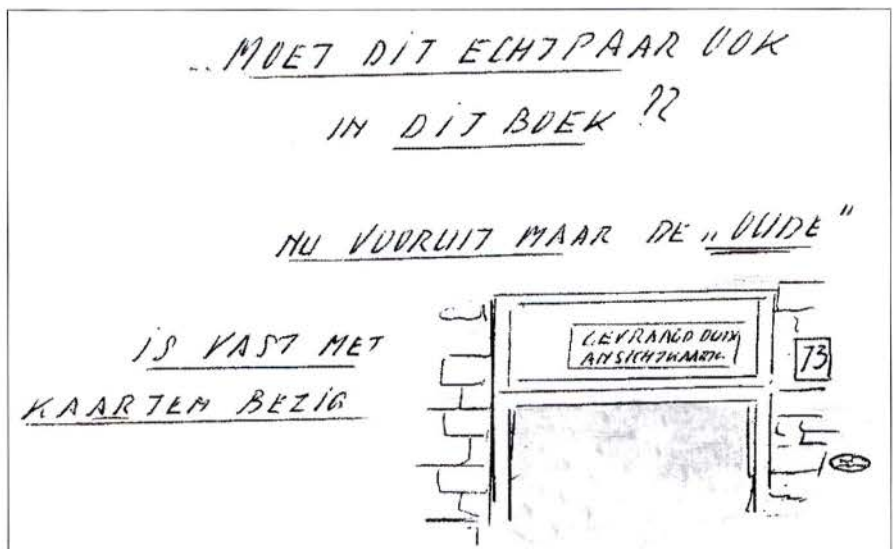 ..MOET DIT ECHTPAAR OOK
IN DIT BOEK ??
NU VOORUIT MAAR DE „OUDE"
IS VAST MET
KAARTEN BEZIG
GEVRAAGD OUDE
ANSICHTKAARTEN
73